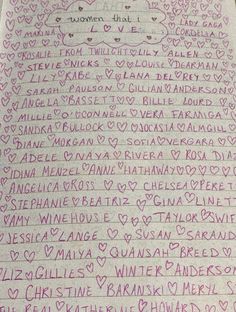 RABE
AM
women that i
LOVE
LADY GAGA
MARINA CORDELIA
ROSALIE FROM TWILIGHT LILY ALLEN
STEVIE NICKS LOUISE DEARMAN
LILY RABE LANA DEL REY
SARAH PAULSON GILLIAN ANDERSON
ANGELA BASSETT BILLIE LOURD
MILLIE O'CONNELL VERA FARMIGA
SANDRA BULLOCK JOCASTA ALMGILL
DIANE MORGAN SOFIA VERGARA
ADELE NAYA RIVERA ROSA DIAZ
IDINA MENZEL ANNE HATHAWAY
ANGELICA ROSS CHELSEA PERET
STEPHANIE BEATRIZ GINA LINET
AMY WINEHOUSE TAYLOR SWIF
JESSICA LANGE SUSAN SARAND
MAIYA QUANSAH BREED
LIZ GILLIES WINTER ANDERSON
CHRISTINE BARANSKI MERYL S
KATHERINE HOWARD